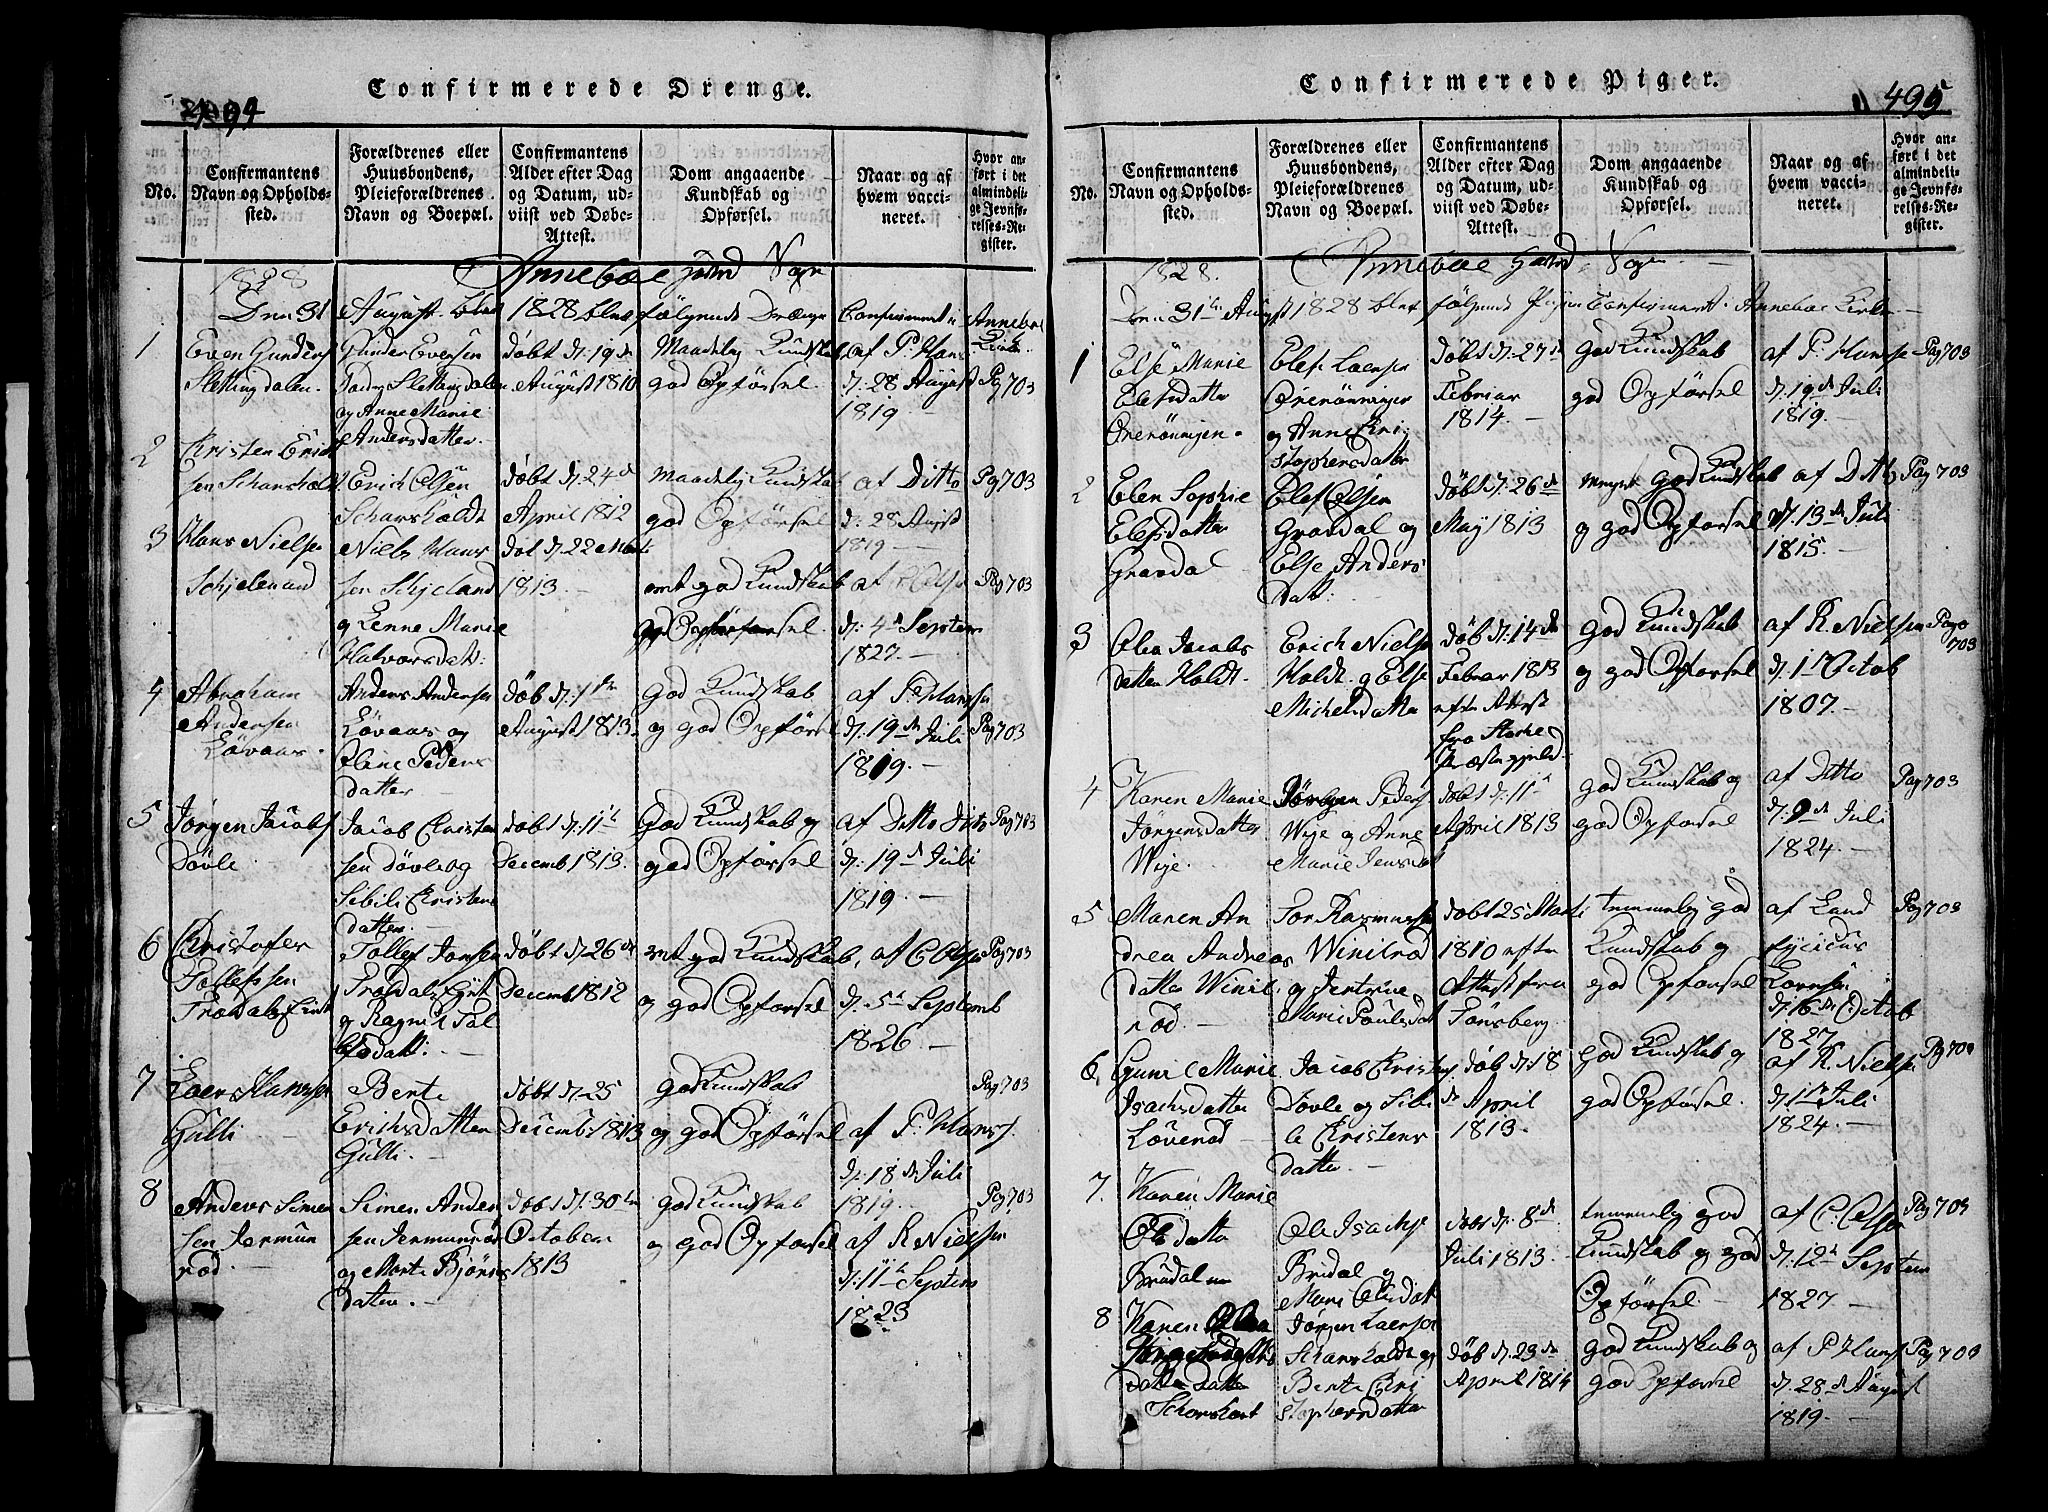 Confirmerede Drenge.
494
No.
Confirmantens Navn og Opholdssted.
Forældrenes eller Huusbondens, Pleieforældrenes Navn og Boepæl.
Confirmantens Alder efter Dag og Datum, udviist ved Døbe-Attest.
Dom angaaende Kundskab og Opførsel.
Naar og af hvem vaccineret.
Hvor anført i det almindelige Jevnførelses-Register.
1828
Anneboe Sogn
Den 31 August 1828 blev følgende Drænge Confirmeret i Anneboe Kirke.
1
Even Gunders
Slettingdalen.
Gunder Evensen
Slettingdalen
og Anne Marie
Andersdatter.
døbt d. 19de
August 1810
Maadelig Kundskab
god Opførsel.
af P. Hans
d. 28 August
1819
Pag 703
2
Christen Erich
sen Schansholdt
Erich Olsen
Schansholdt
døbt d. 24de
April 1812
Maadelig Kundskab
god Opførsel
af Ditto
d. 28 August
1819
Pag 703
3
Hans Nielsen
Niels Hans
sen Schjeland
og Lenne Marie
Halvorsdatt:
døbt d. 22 Marti
1813.
god Kundskab
god Opførsel.
d. 4de Septem
1827.
Pag 703
4
Abraham
Andersen
Løvaas.
Anders Andersen
Løvaas og
Eline Peders
datter
Døb d. 1ste
August 1813.
God Kundskab
og god Opførsel
af P. Hansen
d. 19de Juli
1819.
Pag 703
5
Jørgen Jacobs
Døvle
Jacob Christen
sen Døvle og
Sibile Christens
datter.
døbt d. 11te
Decemb 1813.
God Kundskab og
god Opførsel
af Ditto Ditto
d. 19de Juli
1819.
Pag 703
6
Christofer
Tollefssen
Trødals Eiet
Tollef Jonsen
Trødals Eiet
og Ragnil Tol
lefsdatt:
Døbt d. 26de
Decemb 1812
god Kundskab,
og god Opførsel
af C Olsen
d. 5te Septemb
1826
Pag 703
7
Laers Hanssen
Gulli
Berte
Erichsdatter
Gulli.
døbt d. 25
Decemb 1813
god Kundskab
og god Opførsel
af P. Hans.
d. 18de Juli
1819.
Pag 703
8
Anders Simen
sen Jermun
rød.
Simen Ander
sen Jermunrød
og Marte Bjørns
datter.
Døbt d. 30te
October
1813
god Kundskab
og god Opførsel
af R Nielsen
d. 11te Septem
1823
Pag 703
Confirmerede Piger.
495
No.
Confirmantens Navn og Opholdssted.
Forældrenes eller Huusbondens, Pleieforældrenes Navn og Boepæl.
Confirmantens Alder efter Dag og Datum, udviist ved Døbe-Attest.
Dom angaaende Kundskab og Opførsel.
Naar og af hvem vaccineret.
Hvor anført i det almindelige Jevnførelses-Register.
1828.
Anneboe Sogn
Den 31te August 1828 blev følgende Piger Confirmeret i Anneboe Kirke
1
Else Marie
Elefsdatter
Orerønningen.
Elef Laersen
Orerønningen
og Anne Chri
stophersdatter
Døbt d. 27de
Februar
1814.
god Kundskab
god Opførsel
af P. Hansen
d. 19de Juli
1819.
Pag 703
2
Elen Sophie
Elefsdatter
Gravdal
Elef Olsen
Gravdal og
Else Anders
datt:
Døbt d. 26de
May 1813
meget god Kundskab
og god Opførsel
af Ditto
d. 13de Juli
1815.
Pag 703
3
Olea Jacobs
datter Holdt.
Erich Nielsen
Holdt og Else
Michelsdatter
Døb d. 14de
Februar 1813
efter Attest
fra Stokke
Præstegjeld
God Kundskab
og god Opførsel
af R. Nielsen
d. 1ste Octob
1807.
Pag 703
4
Karen Marie
Jørgensdatter
Weje.
Jørgen Peders
Weje og Anne
Marie Jensdat
døbt d. 11te
April 1813
god Kundskab og
god Opførsel
af Ditto
Juli
1824.
Pag 703
5
Maren An
drea Andreas
datter Winil
rød.
Tor Rasmussen
Winilrød
og Jertrue
Marie Poulsdat
døbt 25 Marti
1810 efter
Attest fra
Tønsberg
temmelig god
Kundskab og
god Opførsel
af Land
fysicus
d. 16de Octob
1827.
Pag 703
6
Gunil Marie
Isachsdatter
Løverød
Jacob Christens
Døvle og Sibi
le Christens
datter.
Døb d. 18
de April
1813.
god Kundskab og
god Opførsel.
af R. Nielsen
d. 1ste Juli
1824.
Pag 703
7.
Karen Marie
Ols datter
Ole Isachsen
Bridal og
Mari Olsdatt
døbt d. 8de
Juli 1813.
temmelig god
Kundskab og god
Opførsel.
af C. Olsen
d. 12te Septem
1827
Pag 703
8
Karen
datter
Schansholt
Jørgen Laersen
Schansholdt og
Berte Chri
stophersdatter
Døb d. 23de
April 1814
god Kundskab og
god Opførsel
af P Hans
d. 28de August
1819.
Pag 703